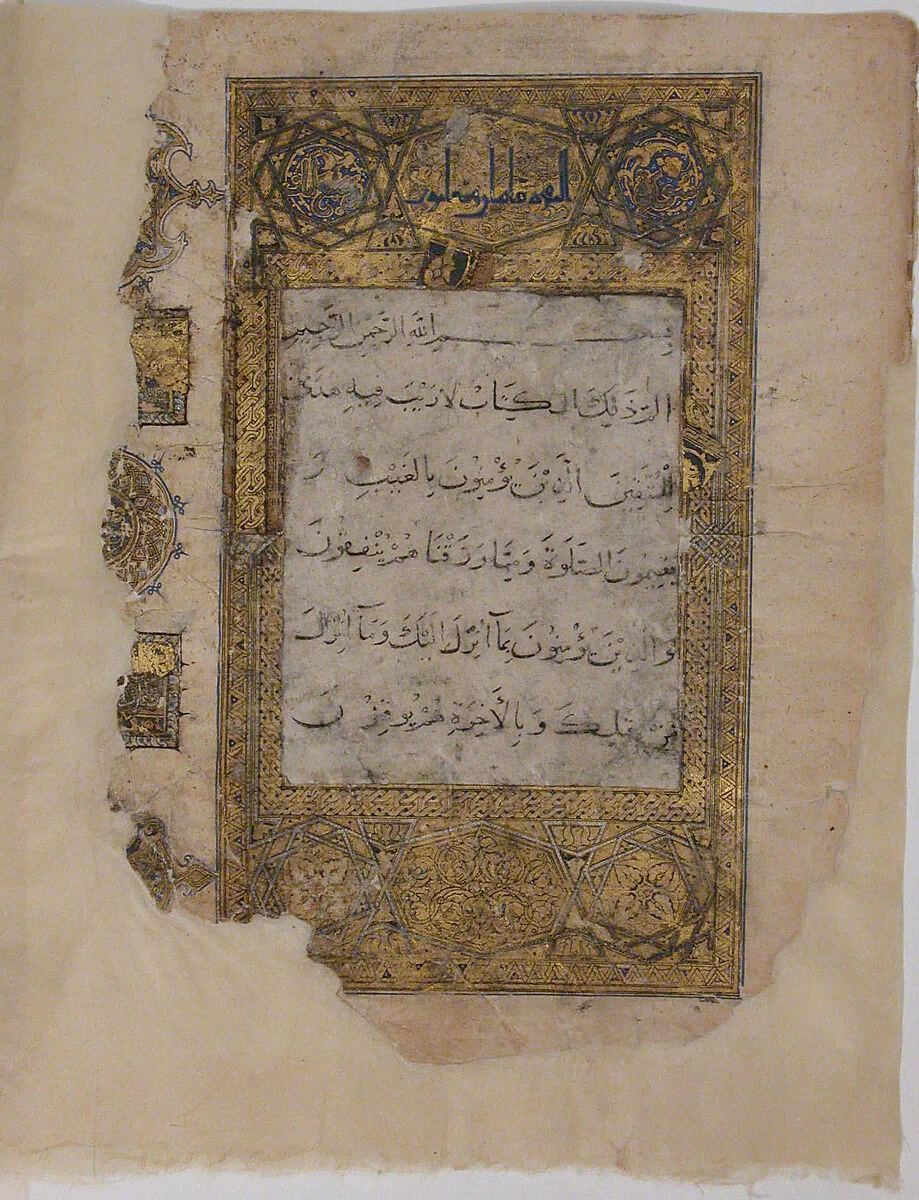 البقره مايتان وثمانون
بِسْمِ اللَّهِ الرَّحْمٰنِ الرَّحِيمِ
الم ذَلِكَ الْكِتَابُ لَا رَيْبَ فِيهِ هُدًى
لِلْمُتَّقِينَ الَّذِينَ يُؤْمِنُونَ بِالْغَيْبِ وَ
يُقِيمُونَ الصَّلَوةَ وَمِمَّا رَزَقْنَا هُمْ يُنْفِقُونَ
وَالَّذِينَ يُؤْمِنُونَ بِمَآ أُنْزِلَ إِلَيْكَ وَمَآ أُنْزِلَ
مِنْ قَبْلِكَ وَبِالْأَخِرَةِ هُمْ يُوقِنُونَ